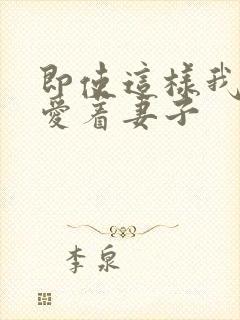 即使這樣我
愛着妻子
李泉